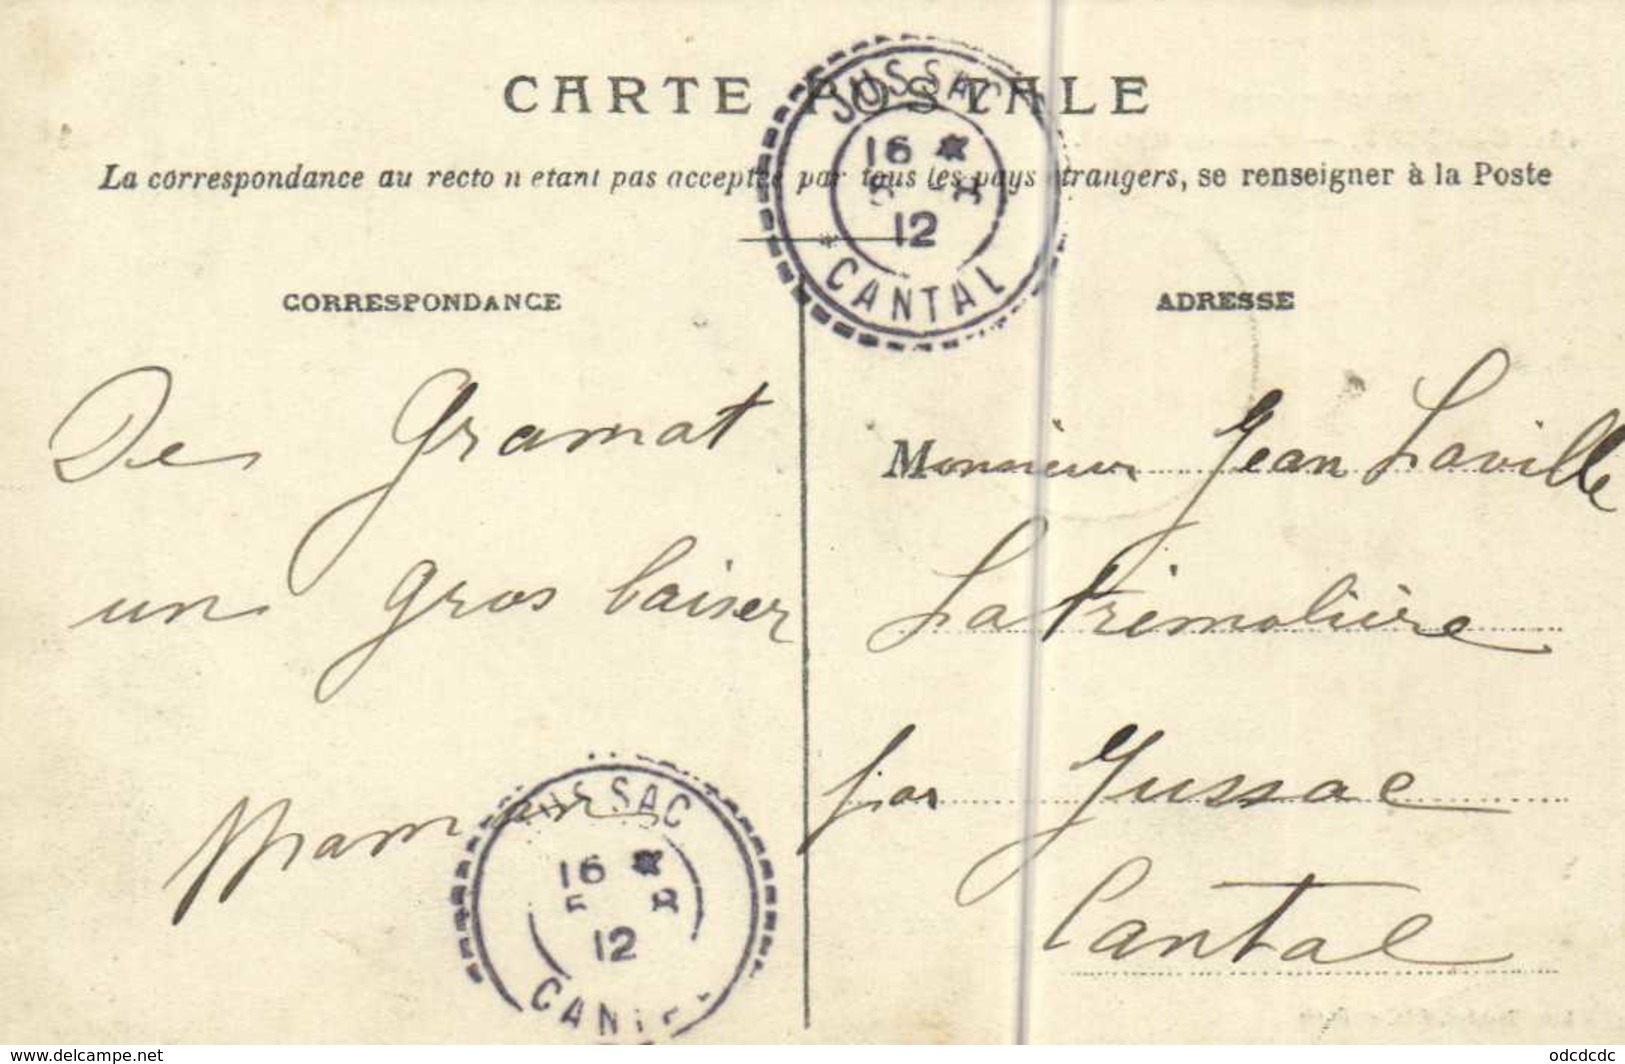 CARTE POSTALE
La correspondance au recto n etant pas acceptée par tous les pays étrangers, se renseigner à la Poste
JUSSAC
16 *
5 - 8
12
CANTAL
CORRESPONDANCE
De Gramat
un gros baiser
Maman
ADRESSE
Monsieur Jean Laville
Latrémolière
par Jussac
Cantal
JUSSAC
16 *
5 8
12
CANTAL
https://www.delcampe.net
odcdcdc